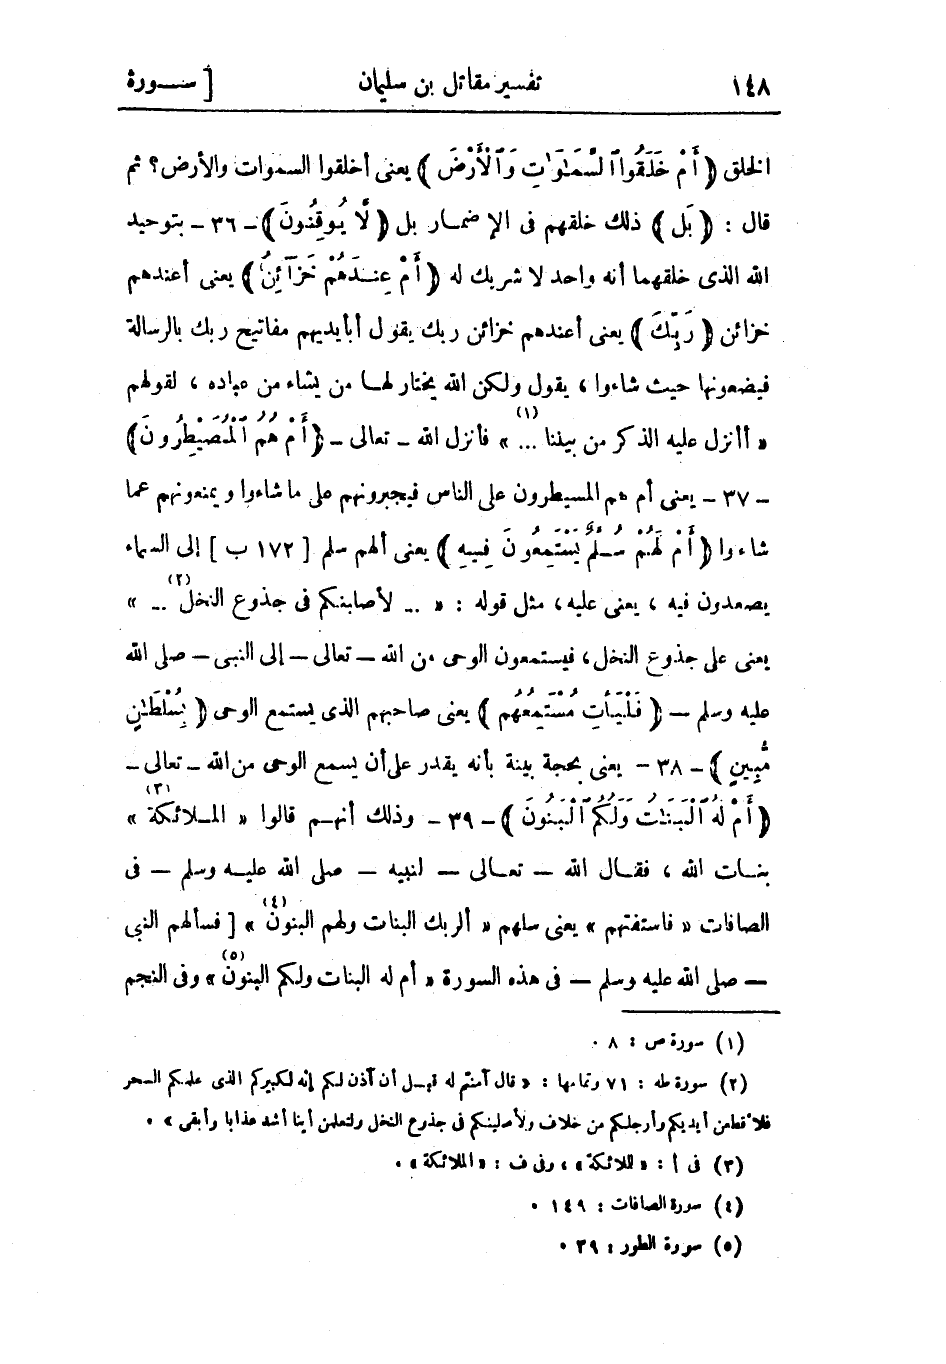 ١٤٨ تفسير مقاتل بن سليمان [ ســـورة
الخلق ﴿ أَمْ خَلَقُوا ٱلسَّمَٰوَٰتِ وَٱلْأَرْضَ ﴾ يعنى أخلقوا السموات والأرض؟ ثم
قال : ﴿ بَل ﴾ ذلك خلقهم فى الإضمـار بل ﴿ لَّا يُوقِنُونَ ﴾ ـ ٣٦ ـ بتوحيد
الله الذى خلقهما أنه واحد لا شريك له ﴿ أَمْ عِندَهُمْ خَزَآئِنُ ﴾ يعنى أعندهم
خزائن ﴿ رَبِّكَ ﴾ يعنى أعندهم خزائن ربك يقول أبأيديهم مفاتيح ربك بالرسالة
فيضعونها حيث شاءوا ، يقول ولكن الله يختار لهـا من يشاء من عباده ، لقولهم
« أأنزل عليه الذكر من بيننا ... (١) » فأنزل الله ـ تعالى ـ ﴿ أَمْ هُمُ ٱلْمُصَيْطِرُونَ ﴾
ـ ٣٧ ـ يعنى أم هم المسيطرون على الناس فيجبرونهم على ما شاءوا ويمنعونهم عما
شاءوا ﴿ أَمْ لَهُمْ سُلَّمٌ يَسْتَمِعُونَ فِيهِ ﴾ يعنى ألهم سلم [ ١٧٢ ب ] إلى السماء
يصعدون فيه ، يعنى عليه، مثل قوله : « ... لأصابنكم فى جذوع النخل (٢) ... »
يعنى على جذوع النخل، فيستمعون الوحى من الله ـ تعالى ـ إلى النبى ـ صلى الله
عليه وسلم ـ ﴿ فَلْيَأْتِ مُسْتَمِعُهُم ﴾ يعنى صاحبهم الذى يستمع الوحى ﴿ بِسُلْطَٰنٍ
مُّبِينٍ ﴾ ـ ٣٨ ـ يعنى بحجة بينة بأنه يقدر على أن يسمع الوحى من الله ـ تعالى ـ
﴿ أَمْ لَهُ ٱلْبَنَٰتُ وَلَكُمُ ٱلْبَنُونَ ﴾ ـ ٣٩ ـ وذلك أنهـم قالوا « المـلائكة (٣) »
بنـات الله ، فقـال الله ـ تعـالى ـ لنبيه ـ صلى الله عليـه وسلم ـ فى
الصافات « فاستفتهم » يعنى سلهم « ألربك البنات ولهم البنون (٤) » [ فسألهم النبى
ـ صلى الله عليه وسلم ـ فى هذه السورة « أم له البنات ولكم البنون (٥) » وفى النجم
(١) سورة ص : ٨ .
(٢) سورة طه : ٧١ وتمامها : « قال آمنتم له قبـل أن آذن لكم إنه لكبيركم الذى علمكم السحر
فلأقطعن أيديكم وأرجلكم من خلاف ولأصلبنكم فى جذوع النخل ولتعلمن أينا أشد عذابا وأبقى » .
(٣) فى أ : « للائكة » ، وفى ف : « الملائكة » .
(٤) سورة الصافات : ١٤٩ .
(٥) سورة الطور : ٣٩ .